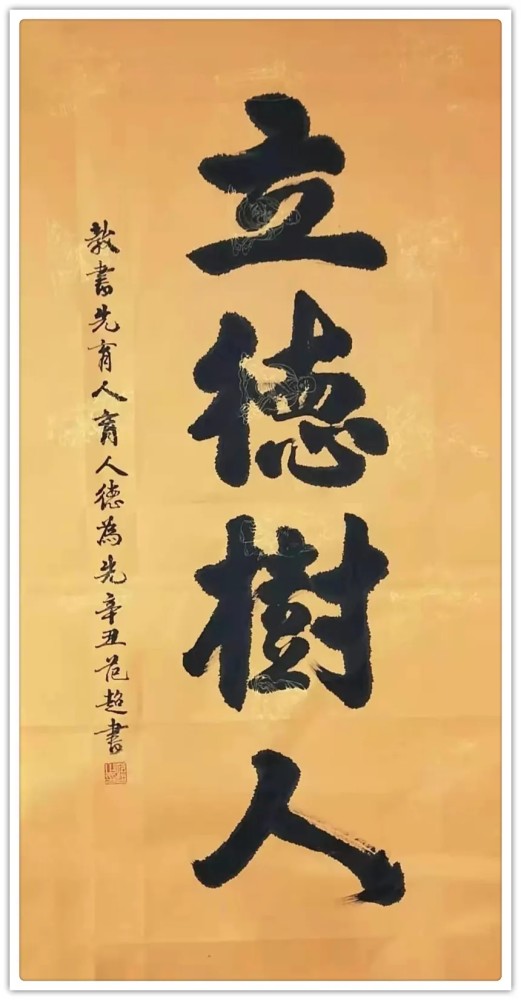 立德樹人
教書先育人育人德為先辛丑范超書